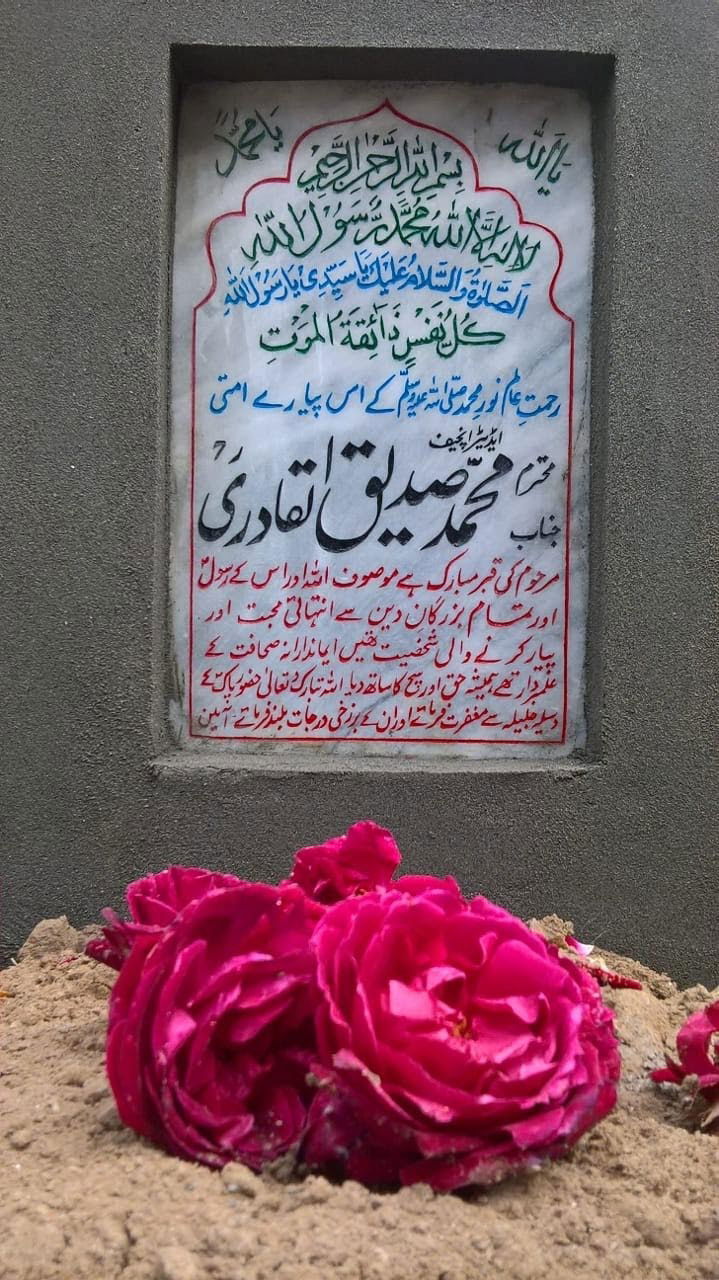 یا اللہ
یا محمد
بِسْمِ اللہِ الرَّحْمٰنِ الرَّحِیْمِ
لَا اِلٰهَ اِلَّا اللهُ مُحَمَّدٌ رَّسُوْلُ اللهِ
اَلصَّلٰوةُ وَالسَّلَامُ عَلَیْكَ یَا سَیِّدِیْ یَا رَسُوْلَ اللهِ
كُلُّ نَفْسٍ ذَائِقَةُ الْمَوْتِ
رحمتِ عالم نورِ محمد صلی اللہ علیہ وسلم کے اس پیارے امتی
ایڈیٹر انچیف
محترم جناب محمد صدیق القادریؒ
مرحوم کی قبر مبارک ہے موصوف اللہ اور اس کے رسولؐ
اور تمام بزرگان دین سے انتہائی محبت اور
پیار کرنے والی شخصیت تھیں ایماندارانہ صحافت کے
علمبردار تھے ہمیشہ حق اور سچ کا ساتھ دیا۔ اللہ تبارک وتعالیٰ حضور پاکؐ کے
وسیلہ جلیلہ سے مغفرت فرمائے اور ان کے برزخی درجات بلند فرمائے۔ آمین